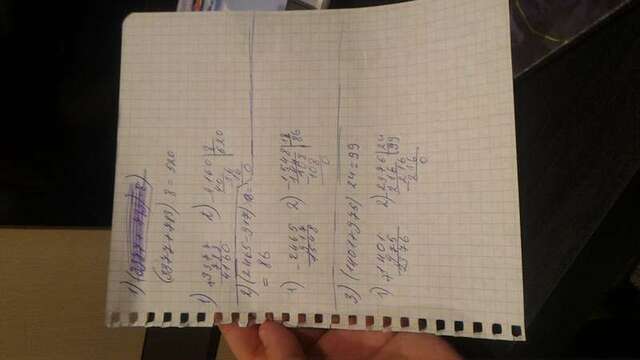 1) (3377 + 783) 8)
(3377 + 783) 8 = 520
1) + 3377
783
4160
2) - 4160 | 8
40 | 520
16
16
0
2) (2465 - 917)
= 86
1) - 2465
917
1548
2) - 1548 | 18
144 | 86
108
108
0
3) (1401 + 975) 24 = 99
1) + 1401
975
2376
2) - 2376 | 24
216 | 99
216
216
0